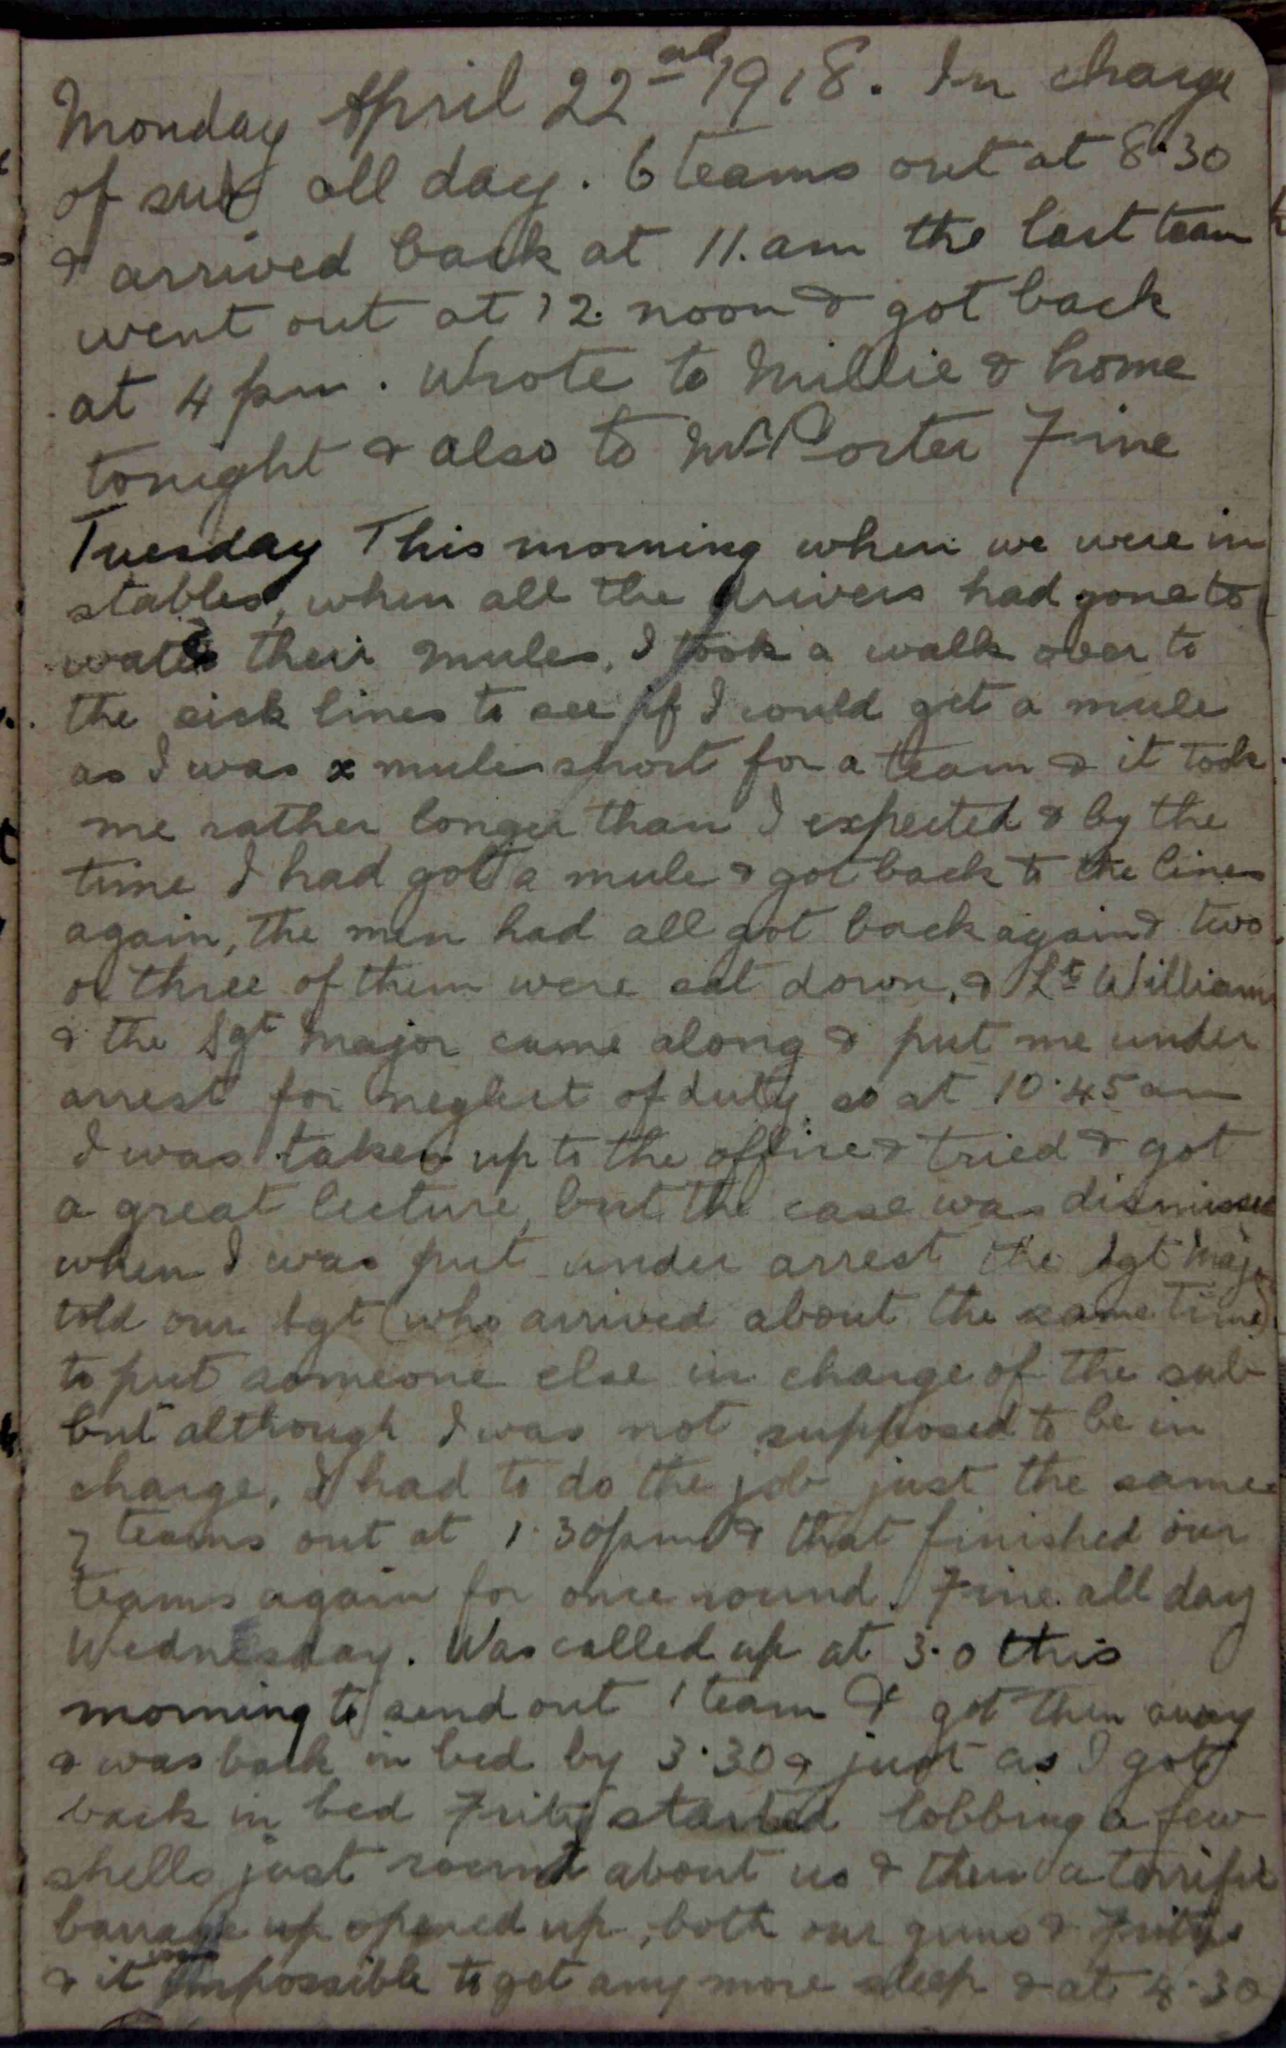 Monday April 22nd 1918. In charge
of sub all day. 6 teams out at 8.30
& arrived back at 11.am the last team
went out at 12 noon & got back
at 4 pm. Wrote to Millie & home
tonight & also to Mr Porter Fine
Tuesday This morning when we were in
stables, when all the drivers had gone to
water their mules, I took a walk over to
the sick lines to see if I could get a mule
as I was a mule short for a team & it took
me rather longer than I expected & by the
time I had got a mule & got back to the lines
again, the men had all got back again & two
or three of them were sat down, & Lt Williams
& the Sgt Major came along & put me under
arrest for neglect of duty so at 10.45 am
I was taken up to the office & tried & got
a great lecture, but the case was dismissed
when I was put under arrest the Sgt Major
told our Sgt (who arrived about the same time)
to put someone else in charge of the sub
but although I was not supposed to be in
charge, I had to do the job just the same.
7 teams out at 1.30pm & that finished our
teams again for once round. Fine all day
Wednesday. Was called up at 3.0 this
morning to send out 1 team & got them away
& was back in bed by 3.30 & just as I got
back in bed Fritz started lobbing a few
shells just round about us & then a terrific
barrage up opened up, both our guns & Fritzs
& it was impossible to get any more sleep & at 4.30